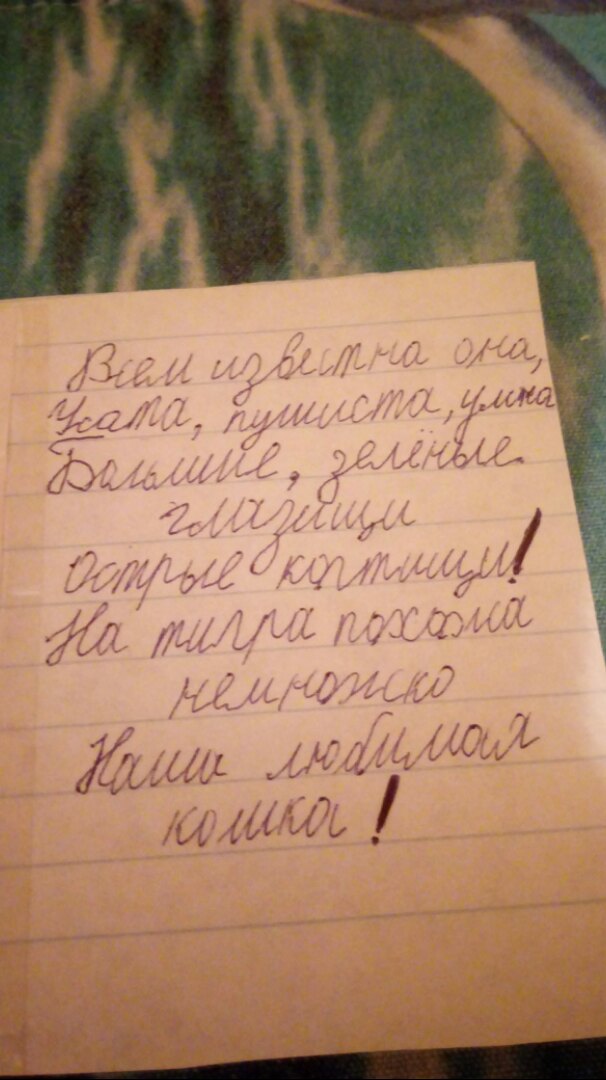 Всем известна она,
Усата, пушиста, умна
Большие, зелёные
глазищи
Острые когтищи!
На тигра похожа
немножко
Наша любимая
кошка!